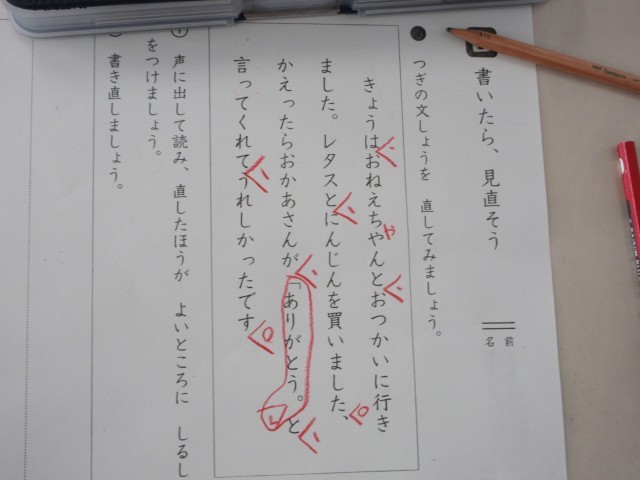 書いたら、見直そう
名前
つぎの文しょうを 直してみましょう。
きょうはおねえちやんとおつかいに行き
ました。レタスとにんじんを買いました、
かえったらおかあさんが「ありがとう。と
言ってくれてうれしかったです
や
声に出して読み、直したほうが よいところに しるし
をつけましょう。
書き直しましょう。